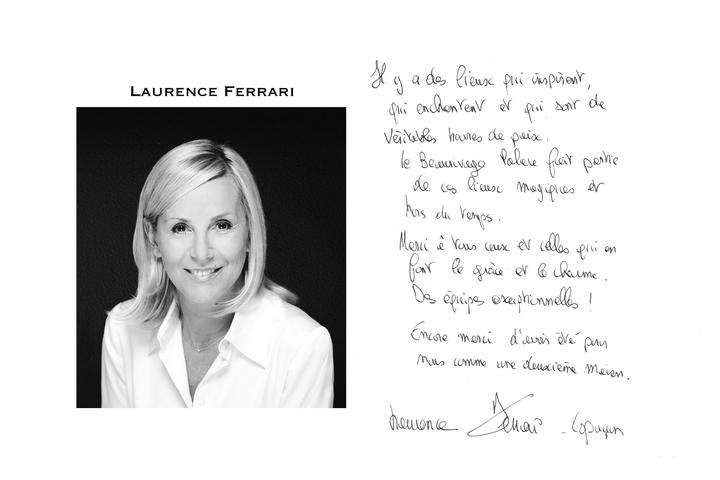 LAURENCE FERRARI
Il y a des lieux qui inspirent,
qui enchantent et qui sont de
véritables havres de paix.
Le Beaurivage Palace fait partie
de ces lieux magiques et
hors du temps.
Merci à tous ceux et celles qui en
font la grâce et le charme.
Des équipes exceptionnelles !
Encore merci d'avoir été pour
nous comme une deuxième maison.
Laurence Ferrari - Capuçon